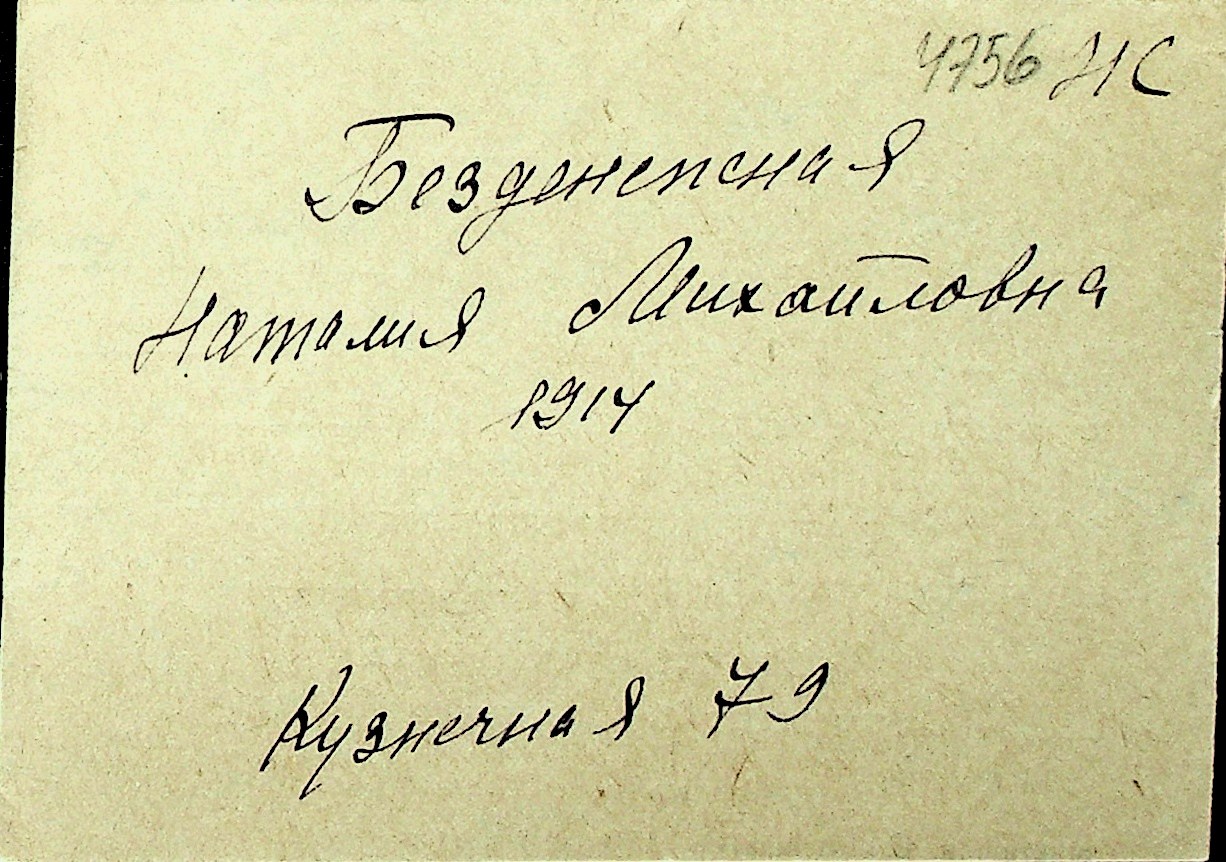 4756 НС
Безденежная
Наталия Михайловна
1914
Кузнечная 79